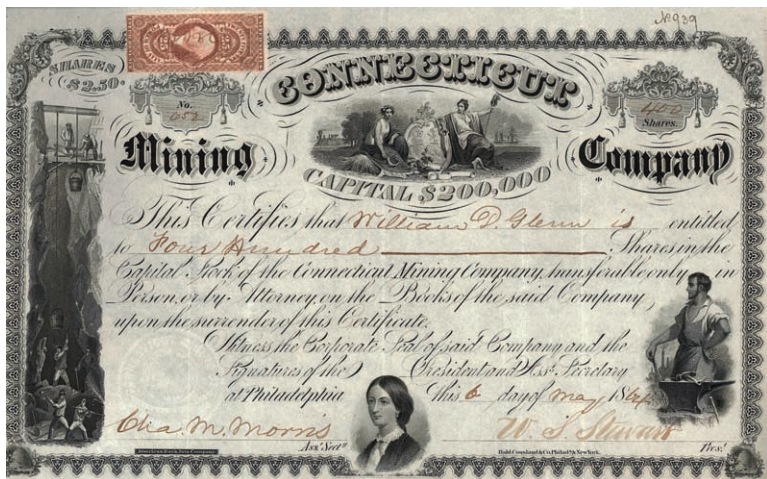 No 939
SHARES
$2.50.
CONNECTICUT
No.
400
Shares.
Mining Company
CAPITAL $200,000
This Certifies that William D. Glenn is entitled
to Four Hundred Shares in the
Capital Stock of the Connecticut Mining Company, transferable only in
Person, or by Attorney, on the Books of the said Company,
upon the surrender of this Certificate.
Witness the Corporate Seal of said Company and the
Signatures of the President and Asst. Secretary
at Philadelphia this 6 day of May 1864
Cha. M. Morris Asst. Secty. W. S. Stewart Prest.
American Bank Note Company